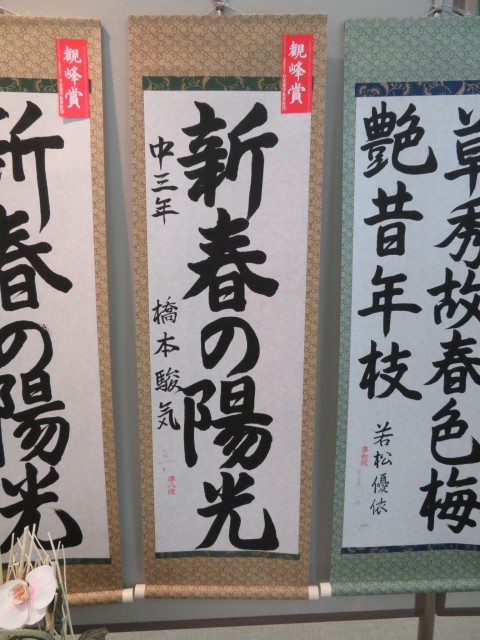 草秀故春色梅
艶昔年枝
若松優依
準初段
観峰賞
新春の陽光
中三年
橋本駿気
準八段
観峰賞
新春の陽光